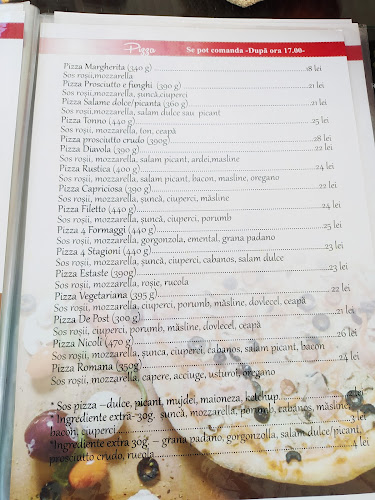 Pizza Se pot comanda -După ora 17.00-
Pizza Margherita (340 g) 18 lei
Sos roșii,mozzarella
Pizza Prosciutto e funghi (390 g) 21 lei
Sos roșii,mozzarella, șuncă,ciuperci
Pizza Salame dolce/picanta (360 g) 21 lei
Sos roșii,mozzarella, salam dulce sau picant
Pizza Tonno (440 g) 25 lei
Sos roșii, mozzarella, ton, ceapă
Pizza prosciutto crudo (390g) 28 lei
Pizza Diavola (390 g) 22 lei
Sos roșii, mozzarella, salam picant, ardei,masline
Pizza Rustica (400 g) 24 lei
Sos roșii, mozzarella, salam picant, bacon, masline, oregano
Pizza Capriciosa (390 g) 22 lei
Sos roșii, mozzarella, șuncă, ciuperci, măsline
Pizza Filetto (440 g) 24 lei
Sos roșii, mozzarella, șuncă, ciuperci, porumb
Pizza 4 Formaggi (440 g) 25 lei
Sos roșii, mozzarella, gorgonzola, emental, grana padano
Pizza 4 Stagioni (440 g) 23 lei
Sos roșii, mozzarella, șuncă, ciuperci, cabanos, salam dulce
Pizza Estaste (390g) 23 lei
Sos roșii, mozzarella, roșie, rucola
Pizza Vegetariana (395 g) 22 lei
Sos roșii, mozzarella, ciuperci, porumb, măsline, dovlecel, ceapă
Pizza De Post (300 g) 21 lei
Sos roșii, ciuperci, porumb, măsline, dovlecel, ceapă
Pizza Nicoli (470 g) 26 lei
Sos roșii, mozzarella, șunca, ciuperci, cabanos, salam picant, bacon
Pizza Romana (350g) 24 lei
Sos roșii, mozzarella, capere, acciuge, usturoi, oregano
* Sos pizza –dulce, picant, mujdei, maioneza, ketchup 3 lei
* Ingrediente extră-30g. șuncă, mozzarella, porumb, cabanos, măsline,
bacon, ciuperci 3 lei
*Ingrediente extra 30g. – grana padano, gorgonzolla, salam dulce/picant,
prosciutto crudo, rucola 4 lei